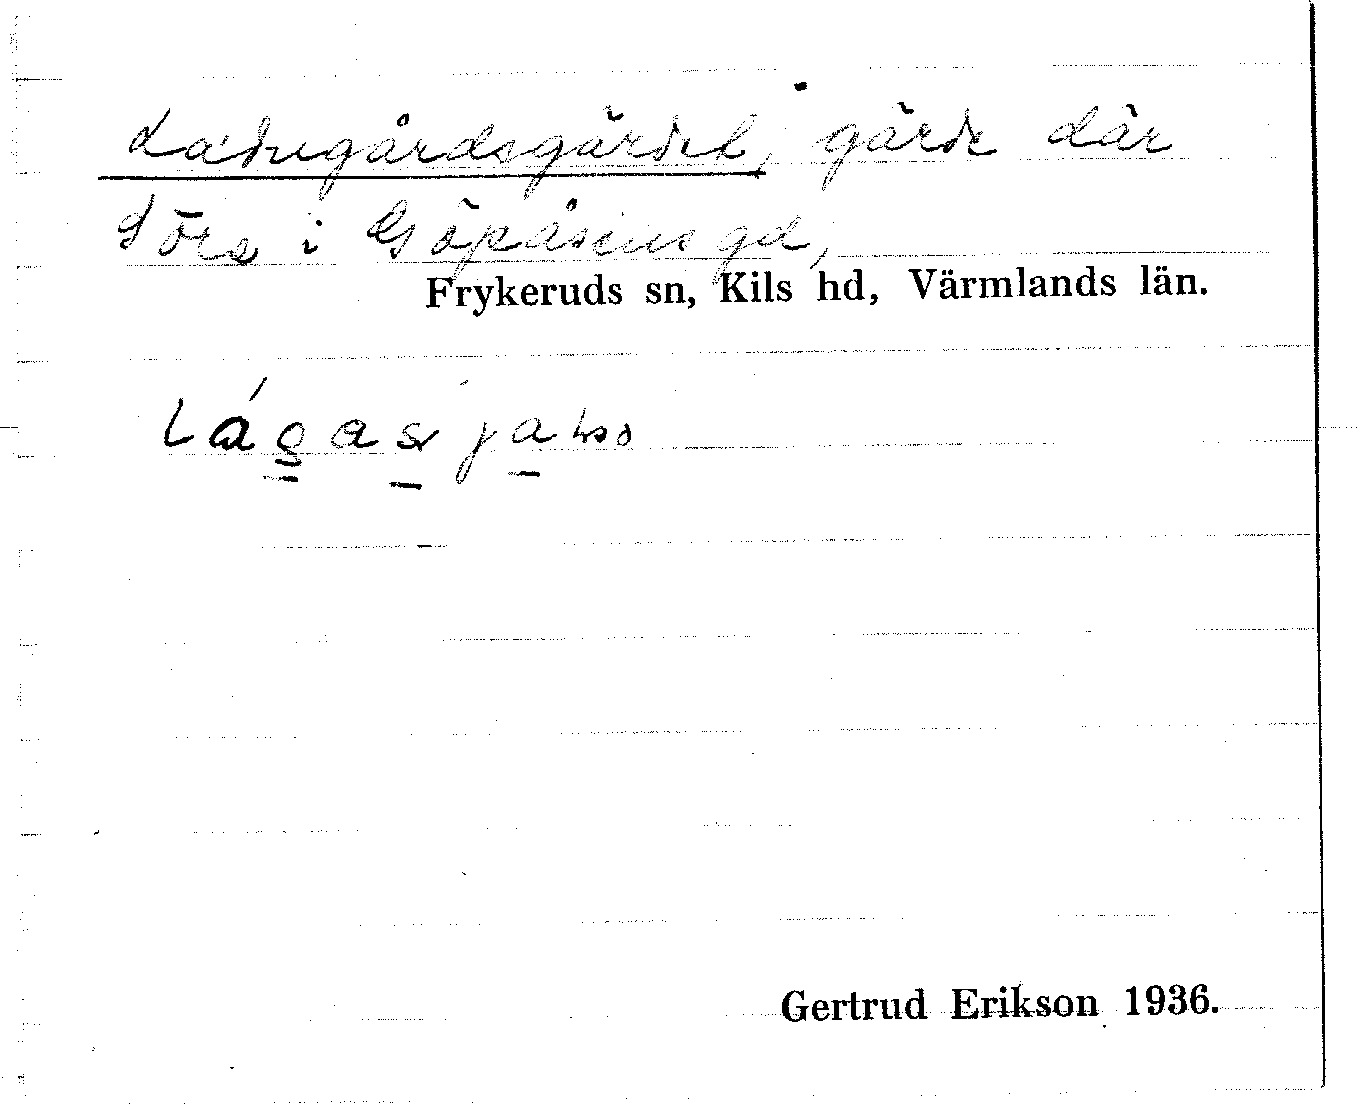 Ladugårdsgärdet, gärde där
Söre i Göpåsens gd,
Frykeruds sn, Kils hd, Värmlands län.
Gertrud Erikson 1936.